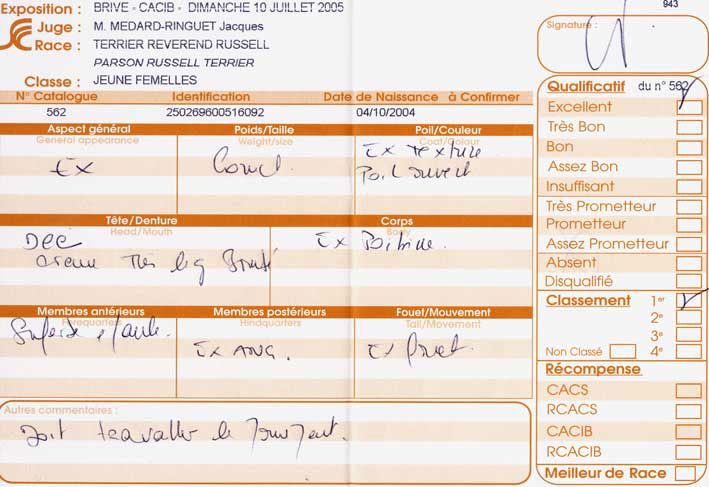 943
Exposition : BRIVE - CACIB - DIMANCHE 10 JUILLET 2005
Juge : M. MEDARD-RINGUET Jacques
Race : TERRIER REVEREND RUSSELL
PARSON RUSSELL TERRIER
Classe : JEUNE FEMELLES
Signature :
N° Catalogue Identification Date de Naissance à Confirmer
562 250269600516092 04/10/2004
Aspect général Poids/Taille Poil/Couleur
General appearance Weight/size Coat/Colour
Ex Correct Ex texture
Poil ouvert
Tête/Denture Corps
Head/Mouth Body
Ex Poitrine
Membres antérieurs Membres postérieurs Fouet/Mouvement
Forequarters Hindquarters Tail/Movement
Ex ANG. Ex fouet.
Autres commentaires :
Doit travailler le
Qualificatif du n° 562
Excellent
Très Bon
Bon
Assez Bon
Insuffisant
Très Prometteur
Prometteur
Assez Prometteur
Absent
Disqualifié
Classement 1er
2e
3e
Non Classé 4e
Récompense
CACS
RCACS
CACIB
RCACIB
Meilleur de Race